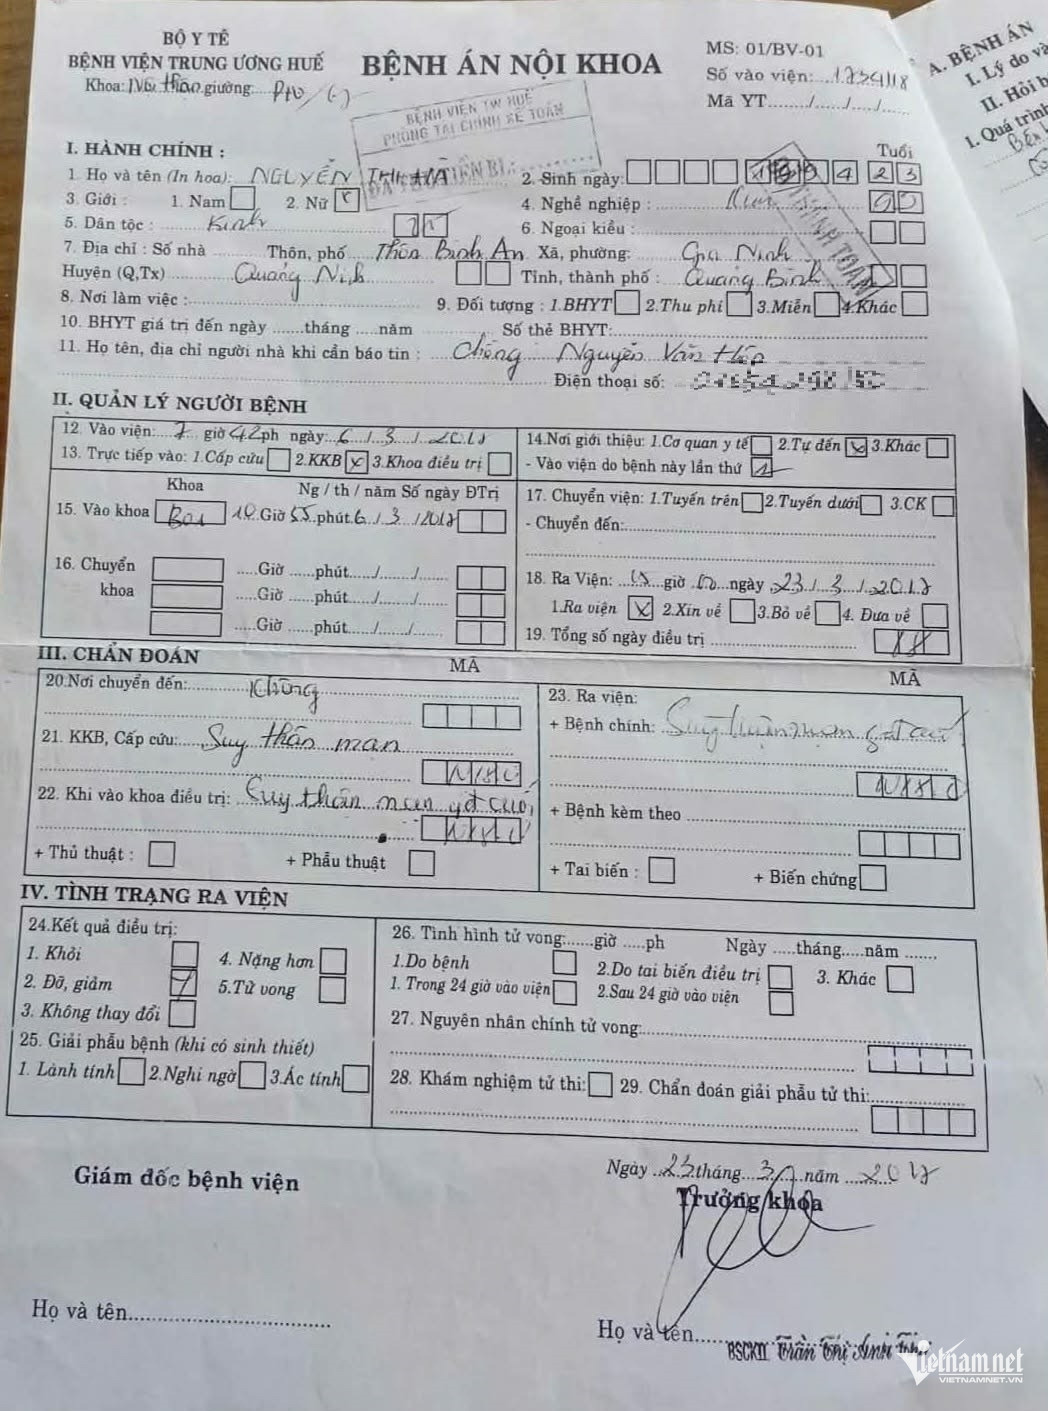 BỘ Y TẾ
BỆNH VIỆN TRUNG ƯƠNG HUẾ
Khoa: thận giường:
BỆNH ÁN NỘI KHOA
MS: 01/BV-01
Số vào viện:
Mã YT....../....../....../......
BỆNH VIỆN TW HUẾ
PHÒNG TÀI CHÍNH KẾ TOÁN
A. BỆNH ÁN
I. Lý do và
II. Hỏi b
1. Quá trình
I. HÀNH CHÍNH :
Tuổi
1. Họ và tên (In hoa): NGUYỄN THỊ HÀ 2. Sinh ngày: 4 2 3
3. Giới : 1. Nam 2. Nữ 4. Nghề nghiệp :
5. Dân tộc : Kinh 6. Ngoại kiều :
7. Địa chỉ : Số nhà Thôn, phố Thôn Bình An Xã, phường: Gia Ninh
Huyện (Q,Tx) Quảng Ninh Tỉnh, thành phố : Quảng Bình
THANH TOÁN
8. Nơi làm việc : 9. Đối tượng : 1.BHYT 2.Thu phí 3.Miễn 4.Khác
10. BHYT giá trị đến ngày .......tháng .....năm Số thẻ BHYT:
11. Họ tên, địa chỉ người nhà khi cần báo tin : Chồng Nguyễn Văn
Điện thoại số:
II. QUẢN LÝ NGƯỜI BỆNH
12. Vào viện: 7 giờ 42 ph ngày: 6 / 3 / 2017
13. Trực tiếp vào: 1.Cấp cứu 2.KKB x 3.Khoa điều trị
14.Nơi giới thiệu: 1.Cơ quan y tế 2.Tự đến x 3.Khác
- Vào viện do bệnh này lần thứ 1
Khoa Ng / th / năm Số ngày ĐTrị
15. Vào khoa 10 Giờ 55 phút 6 / 3 / 2017
16. Chuyển khoa
.....Giờ ......phút....../....../......
.....Giờ ......phút....../....../......
.....Giờ ......phút....../....../......
17. Chuyển viện: 1.Tuyến trên 2.Tuyến dưới 3.CK
- Chuyển đến:
18. Ra Viện: giờ ngày 23 / 3 / 2017
1.Ra viện x 2.Xin về 3.Bỏ về 4. Đưa về
19. Tổng số ngày điều trị
III. CHẨN ĐOÁN
MÃ
MÃ
20.Nơi chuyển đến: Không
21. KKB, Cấp cứu: Suy thận mạn
22. Khi vào khoa điều trị: Suy thận mạn gđ cuối
+ Thủ thuật : + Phẫu thuật
23. Ra viện:
+ Bệnh chính: Suy thận mạn gđ cuối
+ Bệnh kèm theo
+ Tai biến : + Biến chứng
IV. TÌNH TRẠNG RA VIỆN
24.Kết quả điều trị:
1. Khỏi 4. Nặng hơn
2. Đỡ, giảm 5.Tử vong
3. Không thay đổi
25. Giải phẫu bệnh (khi có sinh thiết)
1. Lành tính 2.Nghi ngờ 3.Ác tính
26. Tình hình tử vong:......giờ .....ph Ngày .....tháng.....năm .......
1.Do bệnh 2.Do tai biến điều trị 3. Khác
1. Trong 24 giờ vào viện 2.Sau 24 giờ vào viện
27. Nguyên nhân chính tử vong:
28. Khám nghiệm tử thi: 29. Chẩn đoán giải phẫu tử thi:
Giám đốc bệnh viện
Ngày 23 tháng 3 năm 2017
Trưởng khoa
Họ và tên
Họ và tên BSCKII Trần Thị Anh
Vietnamnet
VIETNAMNET.VN